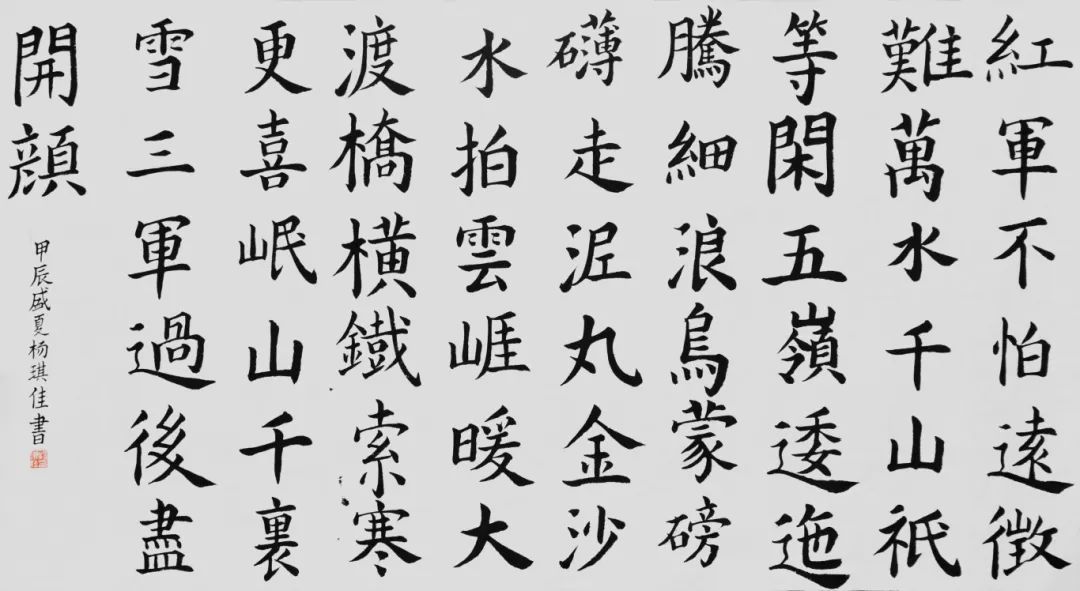 紅軍不怕遠徵
難萬水千山祇
等閑五嶺逶迤
騰細浪烏蒙磅
礴走泥丸金沙
水拍雲崕暖大
渡橋橫鐵索寒
更喜岷山千裏
雪三軍過後盡
開顔
甲辰盛夏杨琪佳書